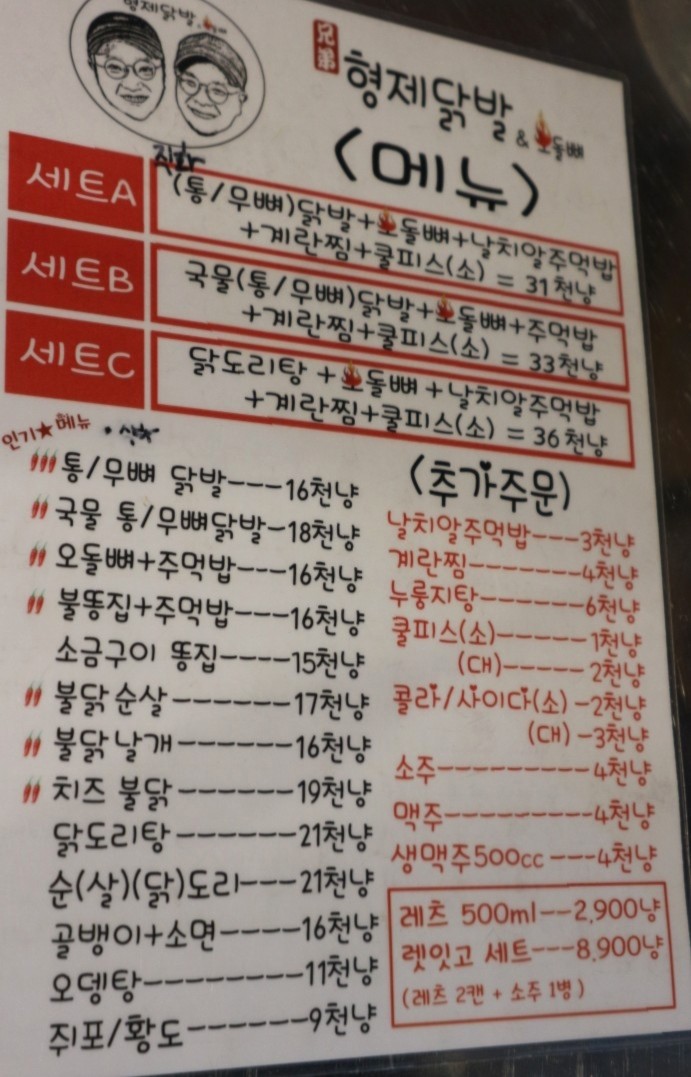 형제닭발
兄弟
형제닭발 & 오돌뼈
<메뉴>
직화
세트A
(통/무뼈)닭발+오돌뼈+날치알주먹밥
+계란찜+쿨피스(소) = 31천냥
세트B
국물(통/무뼈)닭발+오돌뼈+주먹밥
+계란찜+쿨피스(소) = 33천냥
세트C
닭도리탕 +오돌뼈 +날치알주먹밥
+계란찜+쿨피스(소) = 36천냥
인기★메뉴
통/무뼈 닭발---16천냥
국물 통/무뼈닭발-18천냥
오돌뼈+주먹밥---16천냥
불똥집+주먹밥---16천냥
소금구이 똥집----15천냥
불닭순살------17천냥
불닭날개------16천냥
치즈 불닭-----19천냥
닭도리탕------21천냥
순(살)(닭)도리---21천냥
골뱅이+소면----16천냥
오뎅탕--------11천냥
쥐포/황도-------9천냥
(추가주문)
날치알주먹밥---3천냥
계란찜-------4천냥
누룽지탕------6천냥
쿨피스(소)-----1천냥
(대)----2천냥
콜라/사이다(소) -2천냥
(대) -3천냥
소주---------4천냥
맥주---------4천냥
생맥주500cc ---4천냥
레츠 500ml--2,900냥
렛잇고 세트---8,900냥
(레츠 2캔 + 소주 1병)